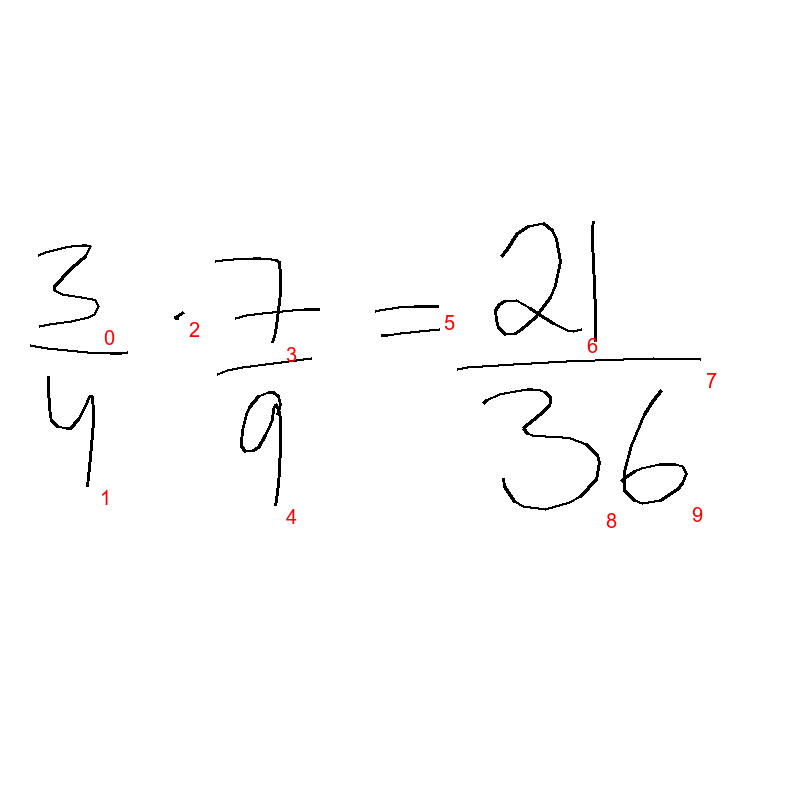 3/4 · 7/9 = 21/36
0 1 2 3 4 5 6 7 8 9